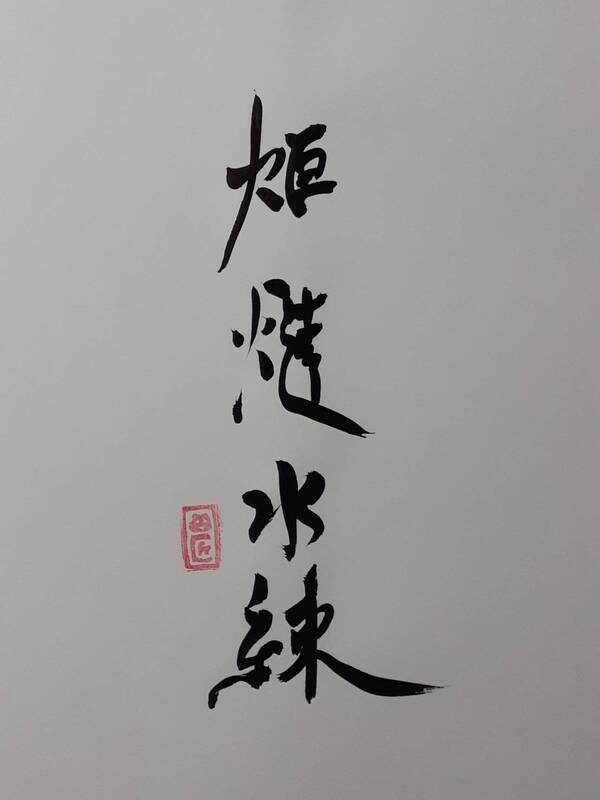 炬燵水練